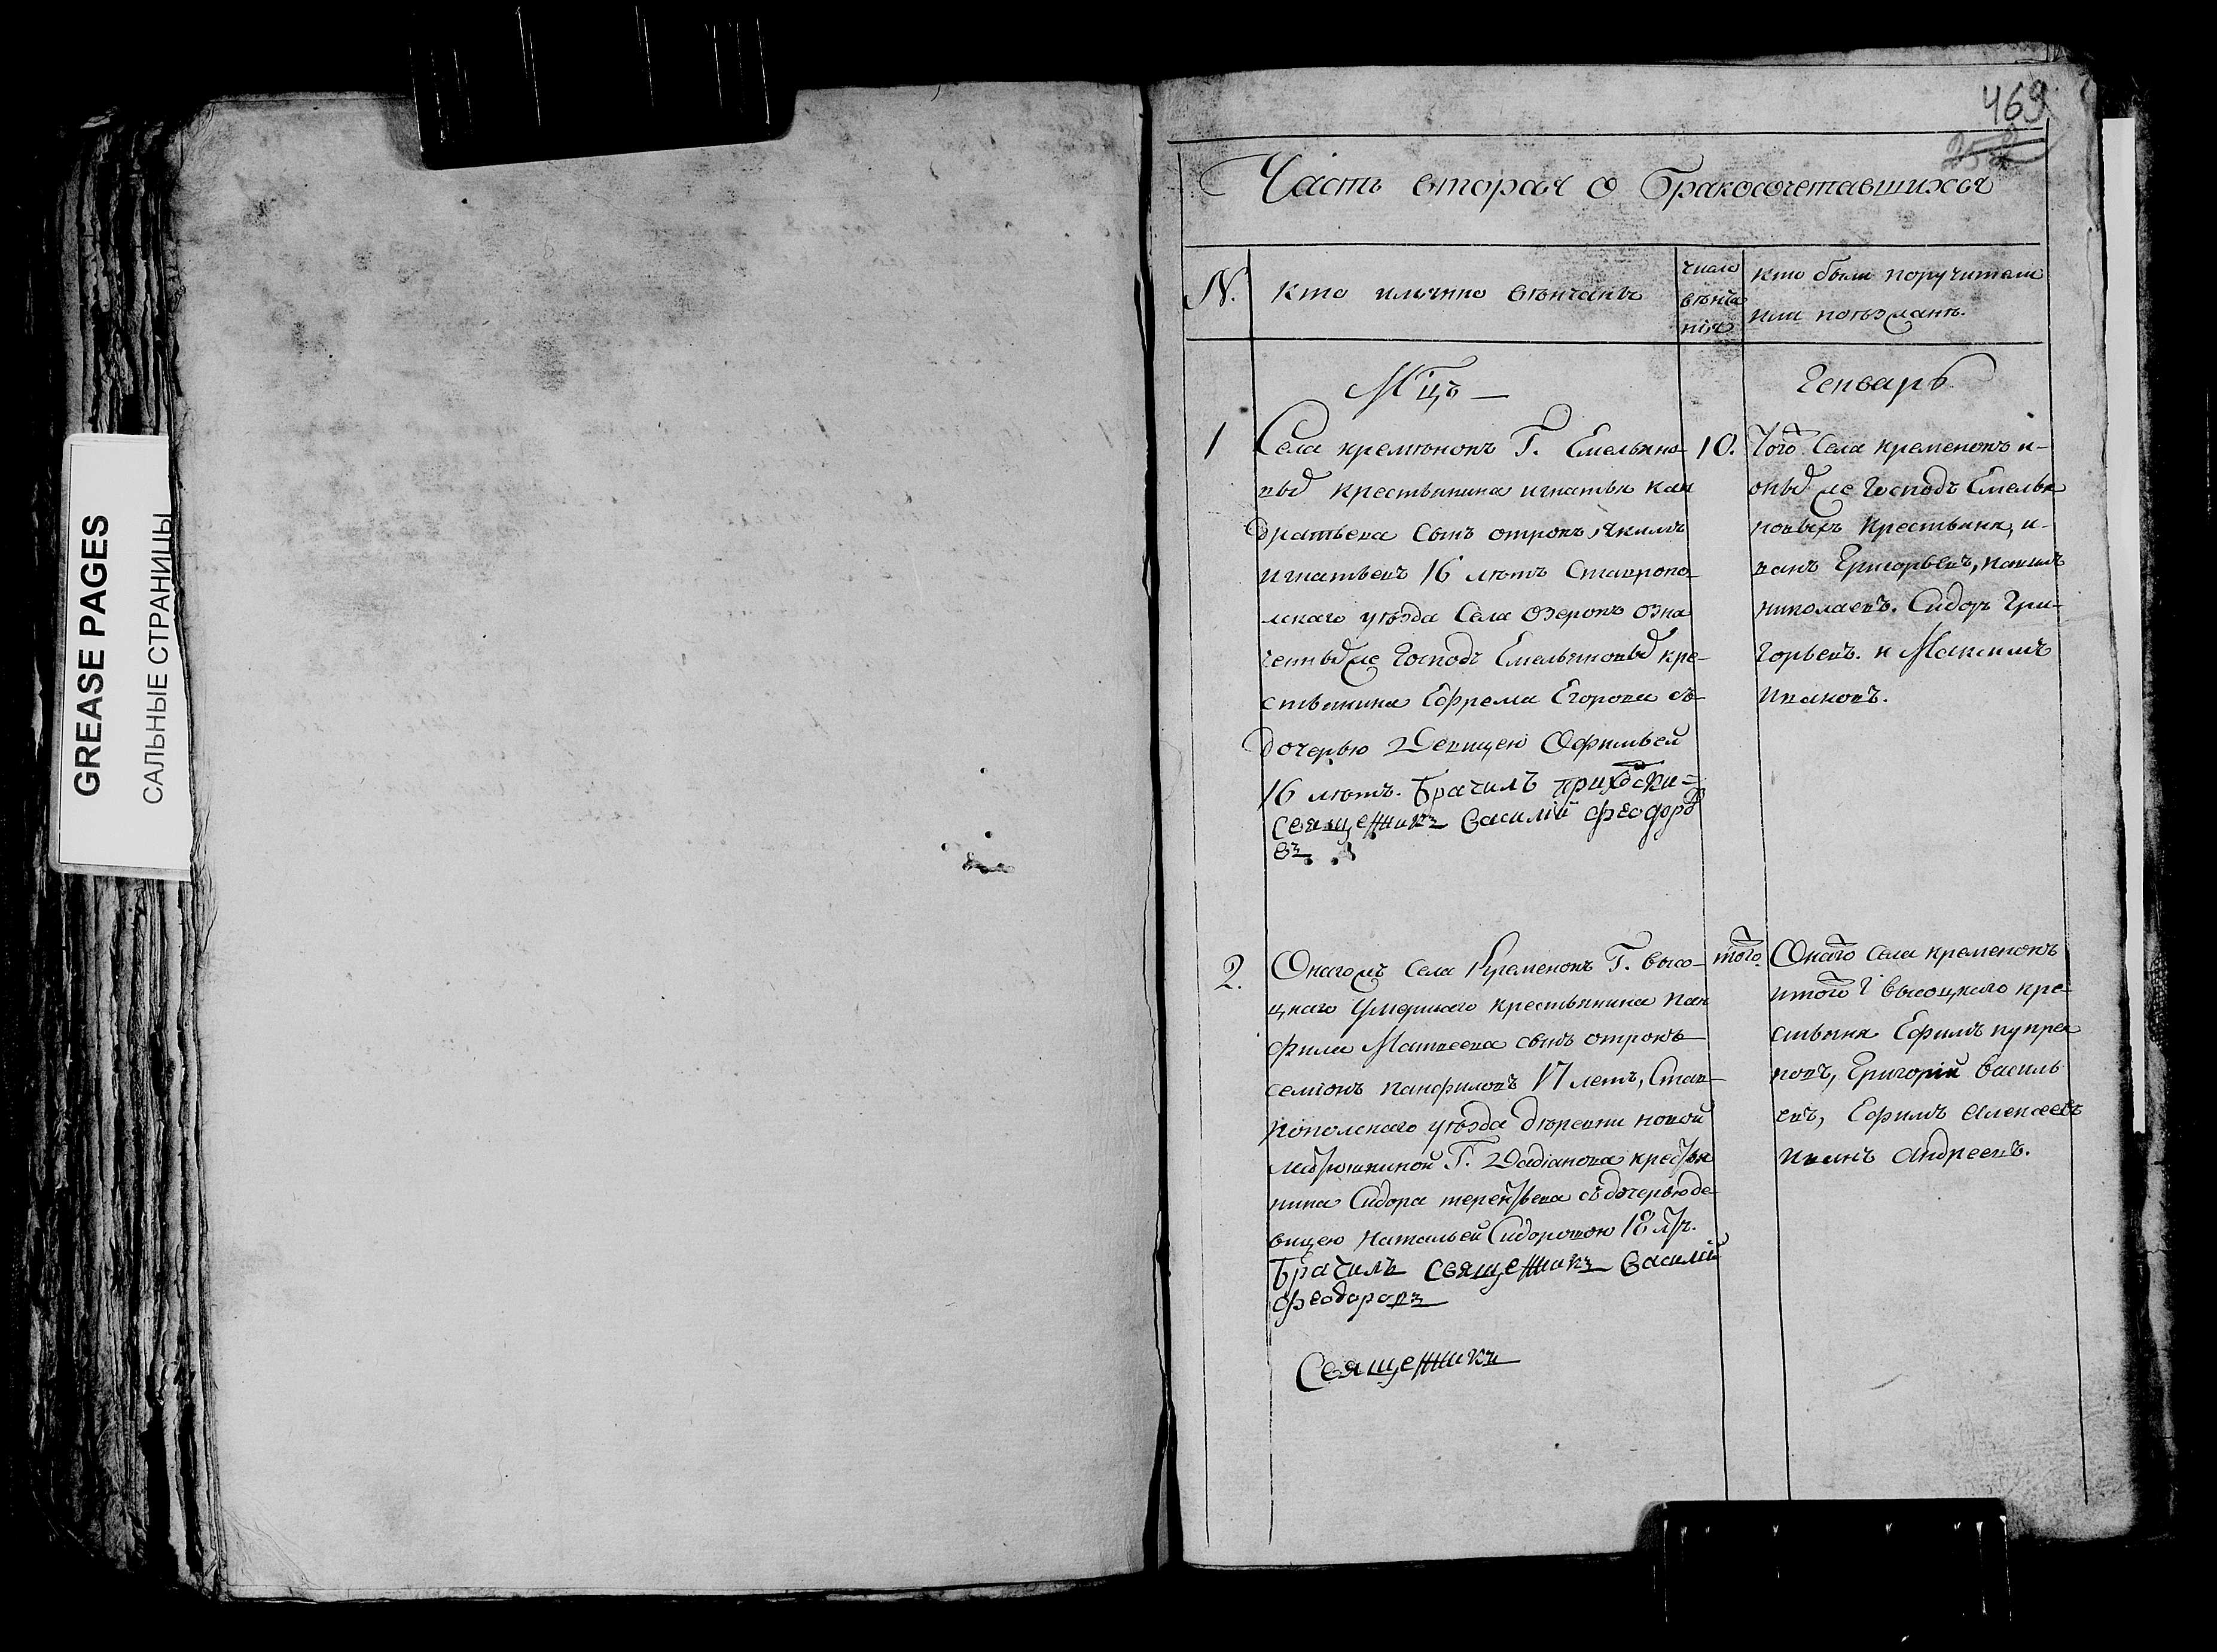 GREASE PAGES
САЛЬНЫЕ СТРАНИЦЫ
469
252
Часть вторая о бракосочетавшихся
N.
кто имянно вѣнчанъ
число
вѣнча
нія
кто были поручители
или поѣзжанѣ.
Мцъ
Генварь
1
Села кремѣнокъ Г. Емельяно-
выхъ крестьянина игнатья кан
дратьева сынъ отрокъ якимъ
игнатьевъ 16 лѣтъ Ставропо-
лскаго уѣзда Села озерокъ озна
ченныхже Господъ Емельяновыхъ кре-
стьянина Ефрема Егорова съ
дочерью Девицею Офимьей
16 лѣтъ. Брачилъ приходски-
священникъ Василій Феодоро
въ
10.
Того Села кременокъ и-
оныхже Господъ Емелья
новыхъ крестьяня, и-
ванъ Григорьевъ,
николаевъ. Сидоръ Гри-
горьевъ. и Максимъ
Ивановъ.
2.
Онагожъ Села Кременокъ Г. высо-
цкаго умершаго крестьянина пан
фила Матвеева сынъ отрокъ
семіонъ панфиловъ 17 летъ, Став-
рополскаго уѣзда дѣревни новой
матюшкиной Г. Дадіанова крестья
нина Сидора терентьева съ дочерью де-
вицею Натальей Сидоровою 18 лтъ.
Брачилъ священникъ Василій
Феодоровъ
Священникъ
того.
Онаго Села кременокъ
итого Г высоцкаго кре-
стьяня Ефимъ купрея
новъ, Григорій Василь
евъ, Ефимъ Алексеевъ
Иванъ Андреевъ.